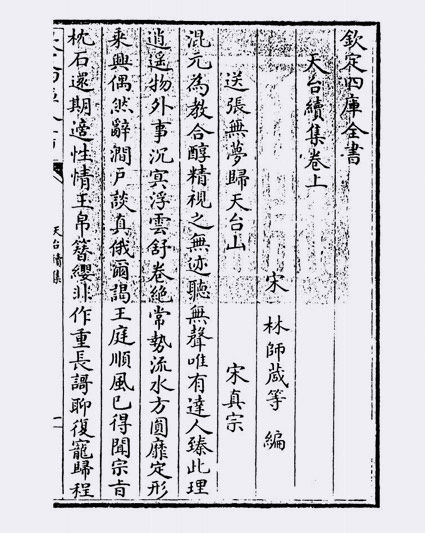 欽定四庫全書
天台續集卷上
宋 林師蒧等 編
送張無夢歸天台山 宋真宗
混元為教含醇精視之無迹聽無聲唯有達人臻此理
逍遥物外事沉㝠浮雲舒卷絶常勢流水方圓靡定形
乘興偶然辭澗户談真俄爾謁王庭順風已得聞宗旨
枕石還期適性情玉帛簪纓非作重長謌聊復寵歸程
天台續集
一